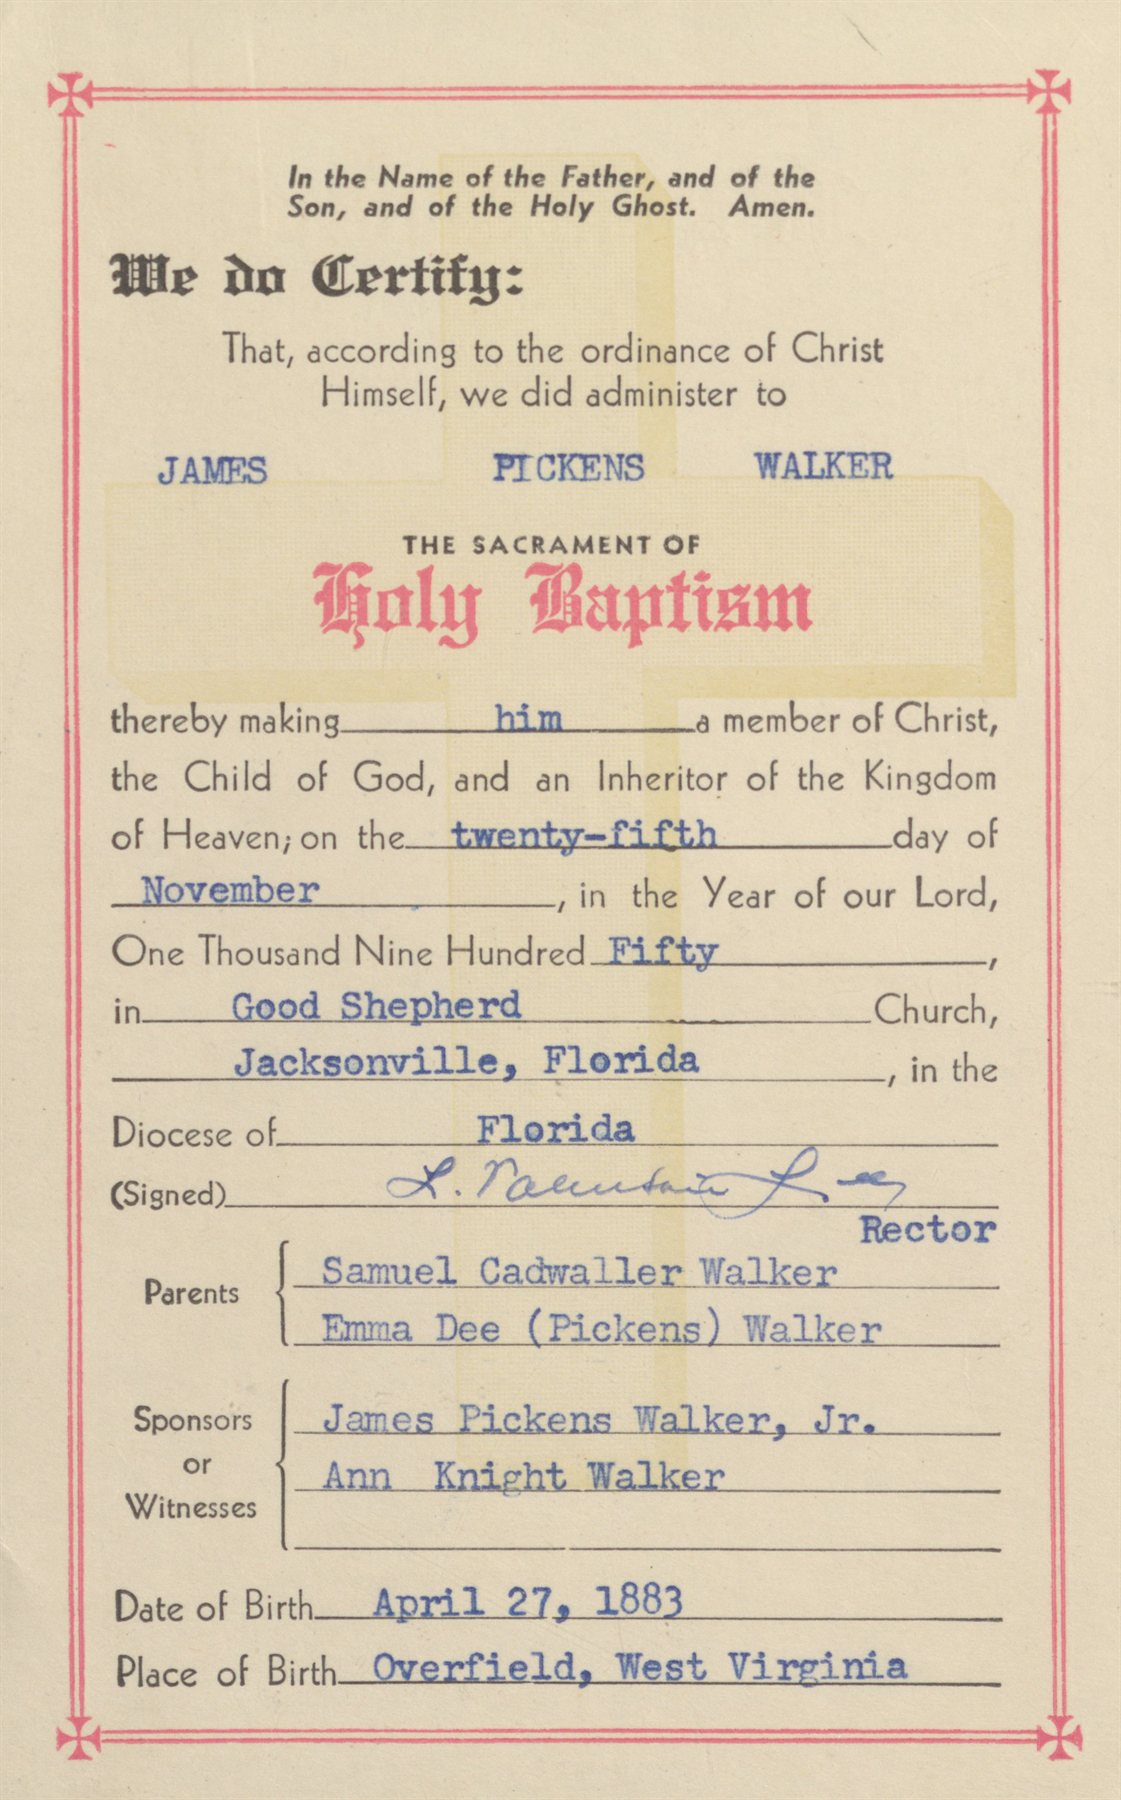 In the Name of the Father, and of the
Son, and of the Holy Ghost. Amen.
We do Certify:
That, according to the ordinance of Christ
Himself, we did administer to
JAMES PICKENS WALKER
THE SACRAMENT OF
Holy Baptism
thereby making him a member of Christ,
the Child of God, and an Inheritor of the Kingdom
of Heaven; on the twenty-fifth day of
November, in the Year of our Lord,
One Thousand Nine Hundred Fifty,
in Good Shepherd Church,
Jacksonville, Florida, in the
Diocese of Florida
(Signed) L.
Rector
Parents
Samuel Cadwaller Walker
Emma Dee (Pickens) Walker
Sponsors
or
Witnesses
James Pickens Walker, Jr.
Ann Knight Walker
Date of Birth April 27, 1883
Place of Birth Overfield, West Virginia